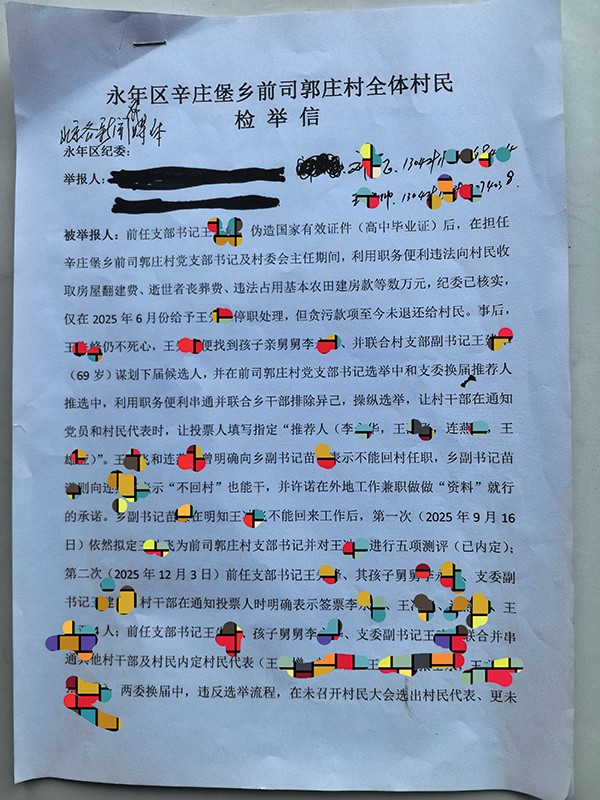 永年区辛庄堡乡前司郭庄村全体村民
检举信
北京各新闻媒体
永年区纪委：
举报人：
被举报人：前任支部书记王 伪造国家有效证件（高中毕业证）后，在担任
辛庄堡乡前司郭庄村党支部书记及村委会主任期间，利用职务便利违法向村民收
取房屋翻建费、逝世者丧葬费、违法占用基本农田建房款等数万元，纪委已核实，
仅在 2025 年 6 月份给予王 停职处理，但贪污款项至今未退还给村民。事后，
王 峰仍不死心，王 便找到孩子亲舅舅李 、并联合村支部副书记王
（69 岁）谋划下届候选人，并在前司郭庄村党支部书记选举中和支委换届推荐人
推选中，利用职务便利串通并联合乡干部排除异己，操纵选举，让村干部在通知
党员和村民代表时，让投票人填写指定“推荐人（李 华，王 ，连燕 ，王
）”。王 飞和连 曾明确向乡副书记苗 表示不能回村任职，乡副书记苗
则向连 示“不回村”也能干，并许诺在外地工作兼职做做“资料”就行
的承诺。乡副书记苗 在明知王 不能回来工作后，第一次（2025 年 9 月 16
日）依然拟定王 飞为前司郭庄村支部书记并对王 进行五项测评（已内定）；
第二次（2025 年 12 月 3 日）前任支部书记王 、其孩子舅舅李 、支委副
书记王建 村干部在通知投票人时明确表示签票李 、王 、 、王
人；前任支部书记王 、孩子舅舅李 、支委副书记王 联合并串
通其他村干部及村民内定村民代表（王 、王
）两委换届中，违反选举流程，在未召开村民大会选出村民代表、更未